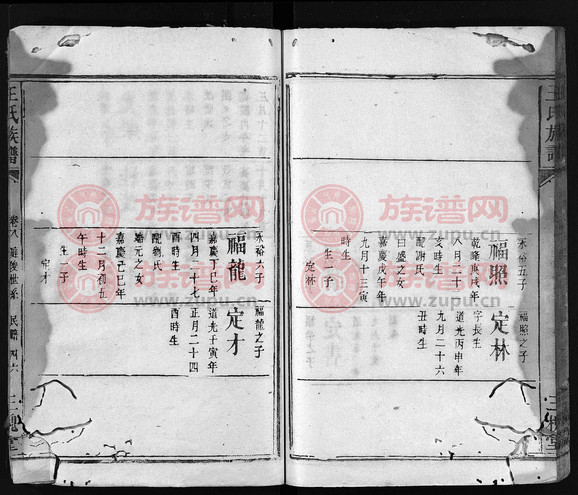 王氏族譜
永裕五子
福照
乾隆庚戌年
八月二十
亥時生
配謝氏
曰盛之女
嘉慶戊午年
九月十三寅
時生
生一子
定林
福照之子
定林
字長生
道光丙申年
九月二十六
丑時生
永裕六子
福龍
嘉慶丁巳年
四月二十七
酉時生
配劉氏
嘉慶己巳年
十二月初五
午時生
生一子
定才
福龍之子
定才
道光壬寅年
正月二十四
酉時生
王氏族譜
卷八
民賜
四六
三槐堂
族谱网
zupu.cn